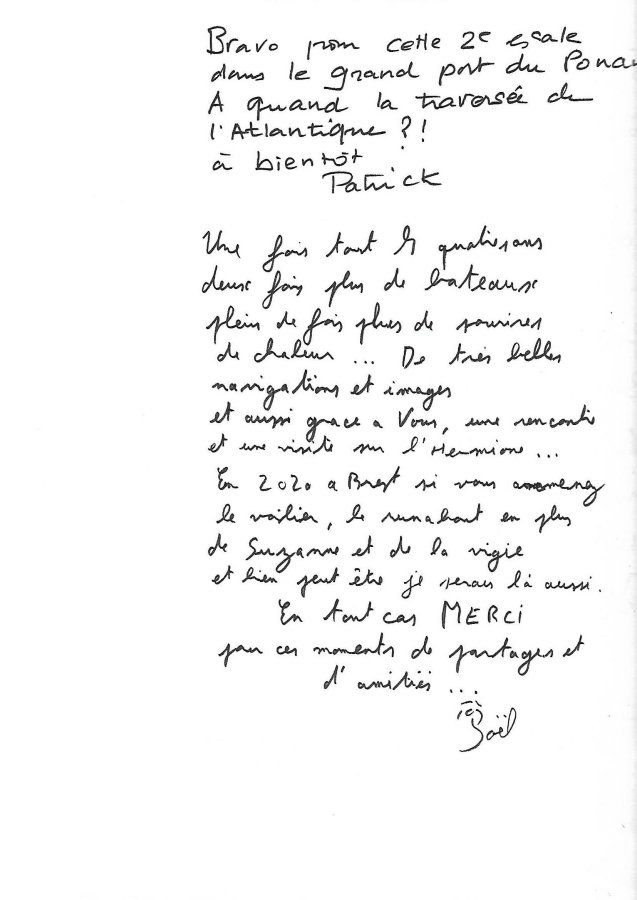 Bravo pour cette 2e escale
dans le grand port du Ponan
A quand la traversée de
l'Atlantique ?!
à bientôt
Patrick
Une fois tout les quatre ans
deux fois plus de bateaux
plein de fois plus de sourires
de chaleur ... De très belles
navigations et images
et aussi grace a Vous, une rencontre
et une visite sur l'Hermione...
En 2020 a Brest si vous amenez
le voilier, le runabout en plus
de Suzanne et de la vigie
et bien peut être je serais là aussi.
En tout cas MERCI
pour ces moments de partages et
d'amitiés ...